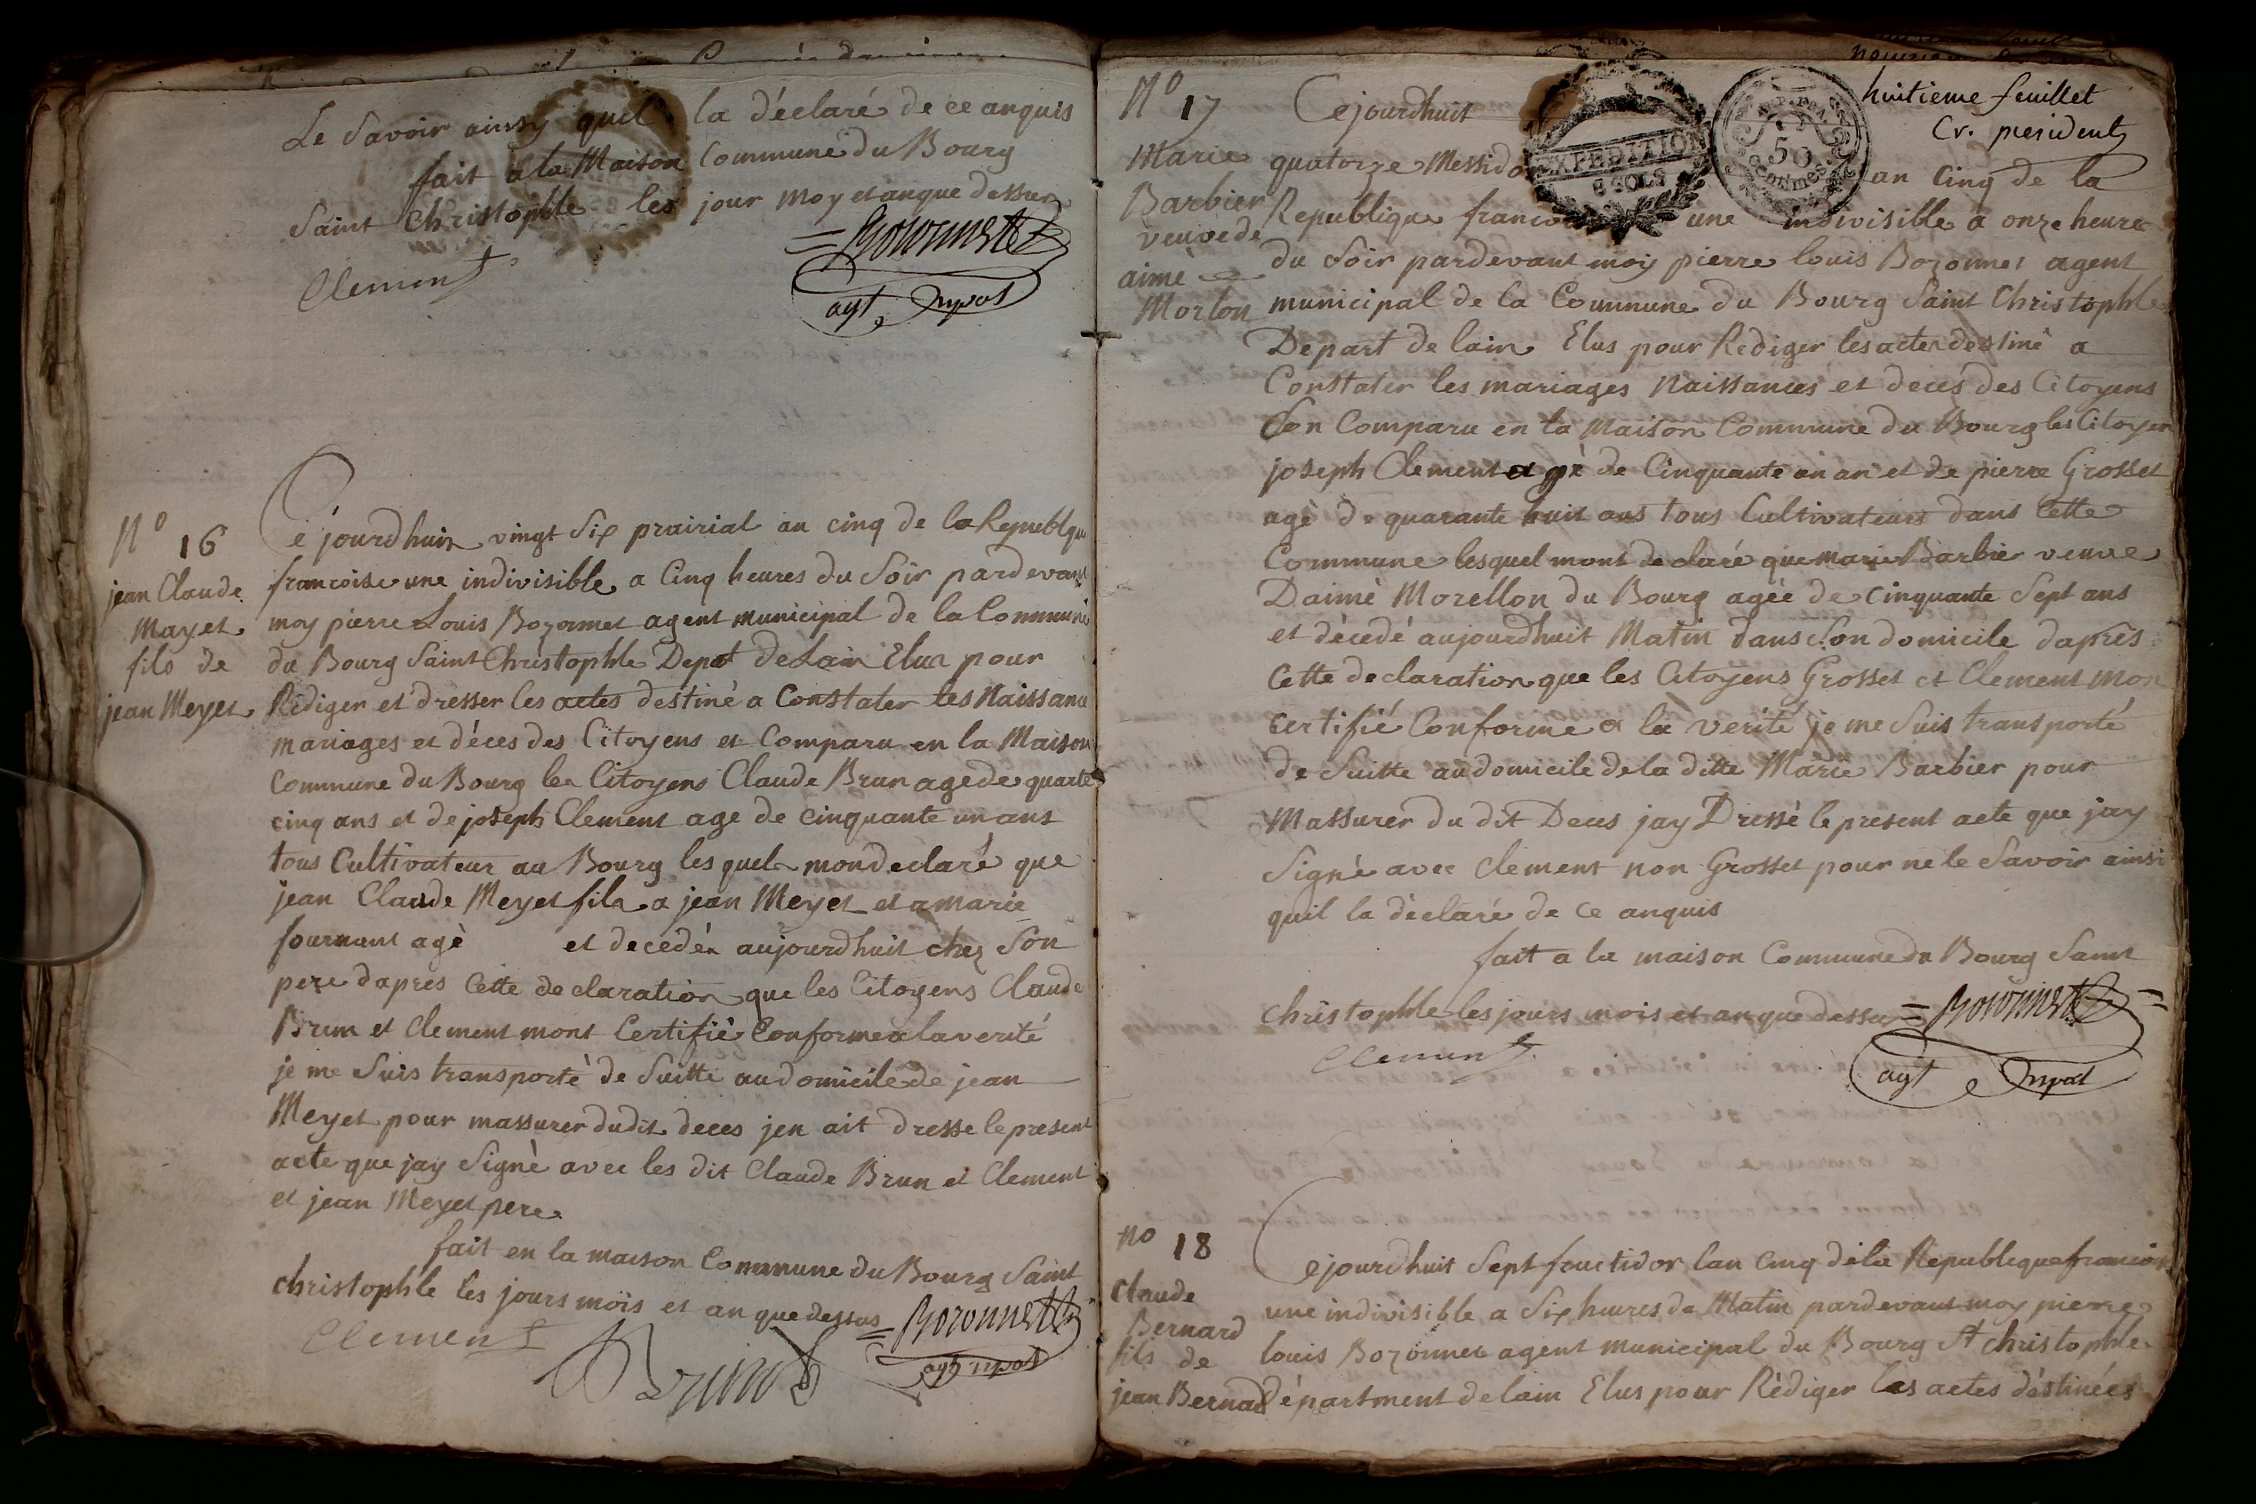 Le Savoir ainsy quil la déclaré de ce anquis
fait a la Maison Commune du Bourg
Saint Christophle les jour moy et an que dessus
= Bozonnet
Clement
agt mpal
No 16
jean Claude
Mayet
fils de
jean Meyet
Cejourdhuit vingt Six prairial an cinq de la Republque
francoise une indivisible a Cinq heures du Soir pardevant
moy pierre Louis Bozonnet agent municipal de la Commune
du Bourg Saint Christophle Depat de Lain Elus pour
Rédiger et dresser les actes destiné a Constater les Naissance
mariages et déces des Citoyens et Comparu en la Maison
Commune du Bourg les Citoyens Claude Brun age de quarte
cinq ans et de joseph Clement age de cinquante un ans
tous Cultivateur au Bourg les quels mon declaré que
jean Claude Meyet fils a jean Meyet et a marie
fournant agè et decedé aujourdhuit chez Son
pere daprès Cette declaration que les Citoyens Claude
Brun et Clement mont Certifié Conforme a la verité
je me Suis transporté de Suitte au domicile de jean
Meyet pour massurer dudit deces jen ait dresse le present
acte que jay Signè avec les dit Claude Brun et Clement
et jean Meyet pere
fait en la maison Commune du Bourg Saint
christophle les jours mois et an que dessus = Bozonnet
Clement
Brun
agt mpal
huitieme feuillet
Cr. president
EXPEDITION
6 SOLS
50
centimes
No 17
Marie
Barbier
veuve de
aimè
Morlon
Cejourdhuit
quatorze Messidor an Cinq de la
Republique francoise une indivisible a onze heure
du Soir pardevant moy pierre louis Bozonnet agent
municipal de la Commune du Bourg Saint Christophle
Depart de lain Elus pour Rediger les actes destiné a
Constater les mariages Naissances et deces des Citoyens
Son Comparu en la Maison Commune du Bourg les Citoyen
joseph Clement agè de Cinquante un an et de pierre Grosset
agè de quarante huit ans tous Cultivateurs dans Cette
Commune lesquel mont declaré que marie Barbier veuve
Daimè Morellon du Bourg agée de cinquante Sept ans
et décedé aujourdhuit Matin dans Son domicile daprès
Cette declaration que les Citoyens Grosset et Clement mon
certifié Conforme a la verité je me Suis transporté
de Suitte au domicile de la ditte Marie Barbier pour
Massurer du dit Deces jay Dressé le present acte que jay
Signé avec Clement non Grosset pour ne le Savoir ainsi
quil la déclaré de ce anquis
fait a la maison Commune du Bourg Saint
christophle les jours mois et an que dessus = Bozonnet =
Clement
agt mpal
no 18
Claude
Bernard
fils de
jean Bernad
Cejourdhuit Sept fructidor lan Cinq déla Republique francoise
une indivisible a Six heures du Matin pardevant moy pierre
louis Bozonnet agent municipal du Bourg St christophle
département de lain Elus pour Rèdiger les actes déstinées